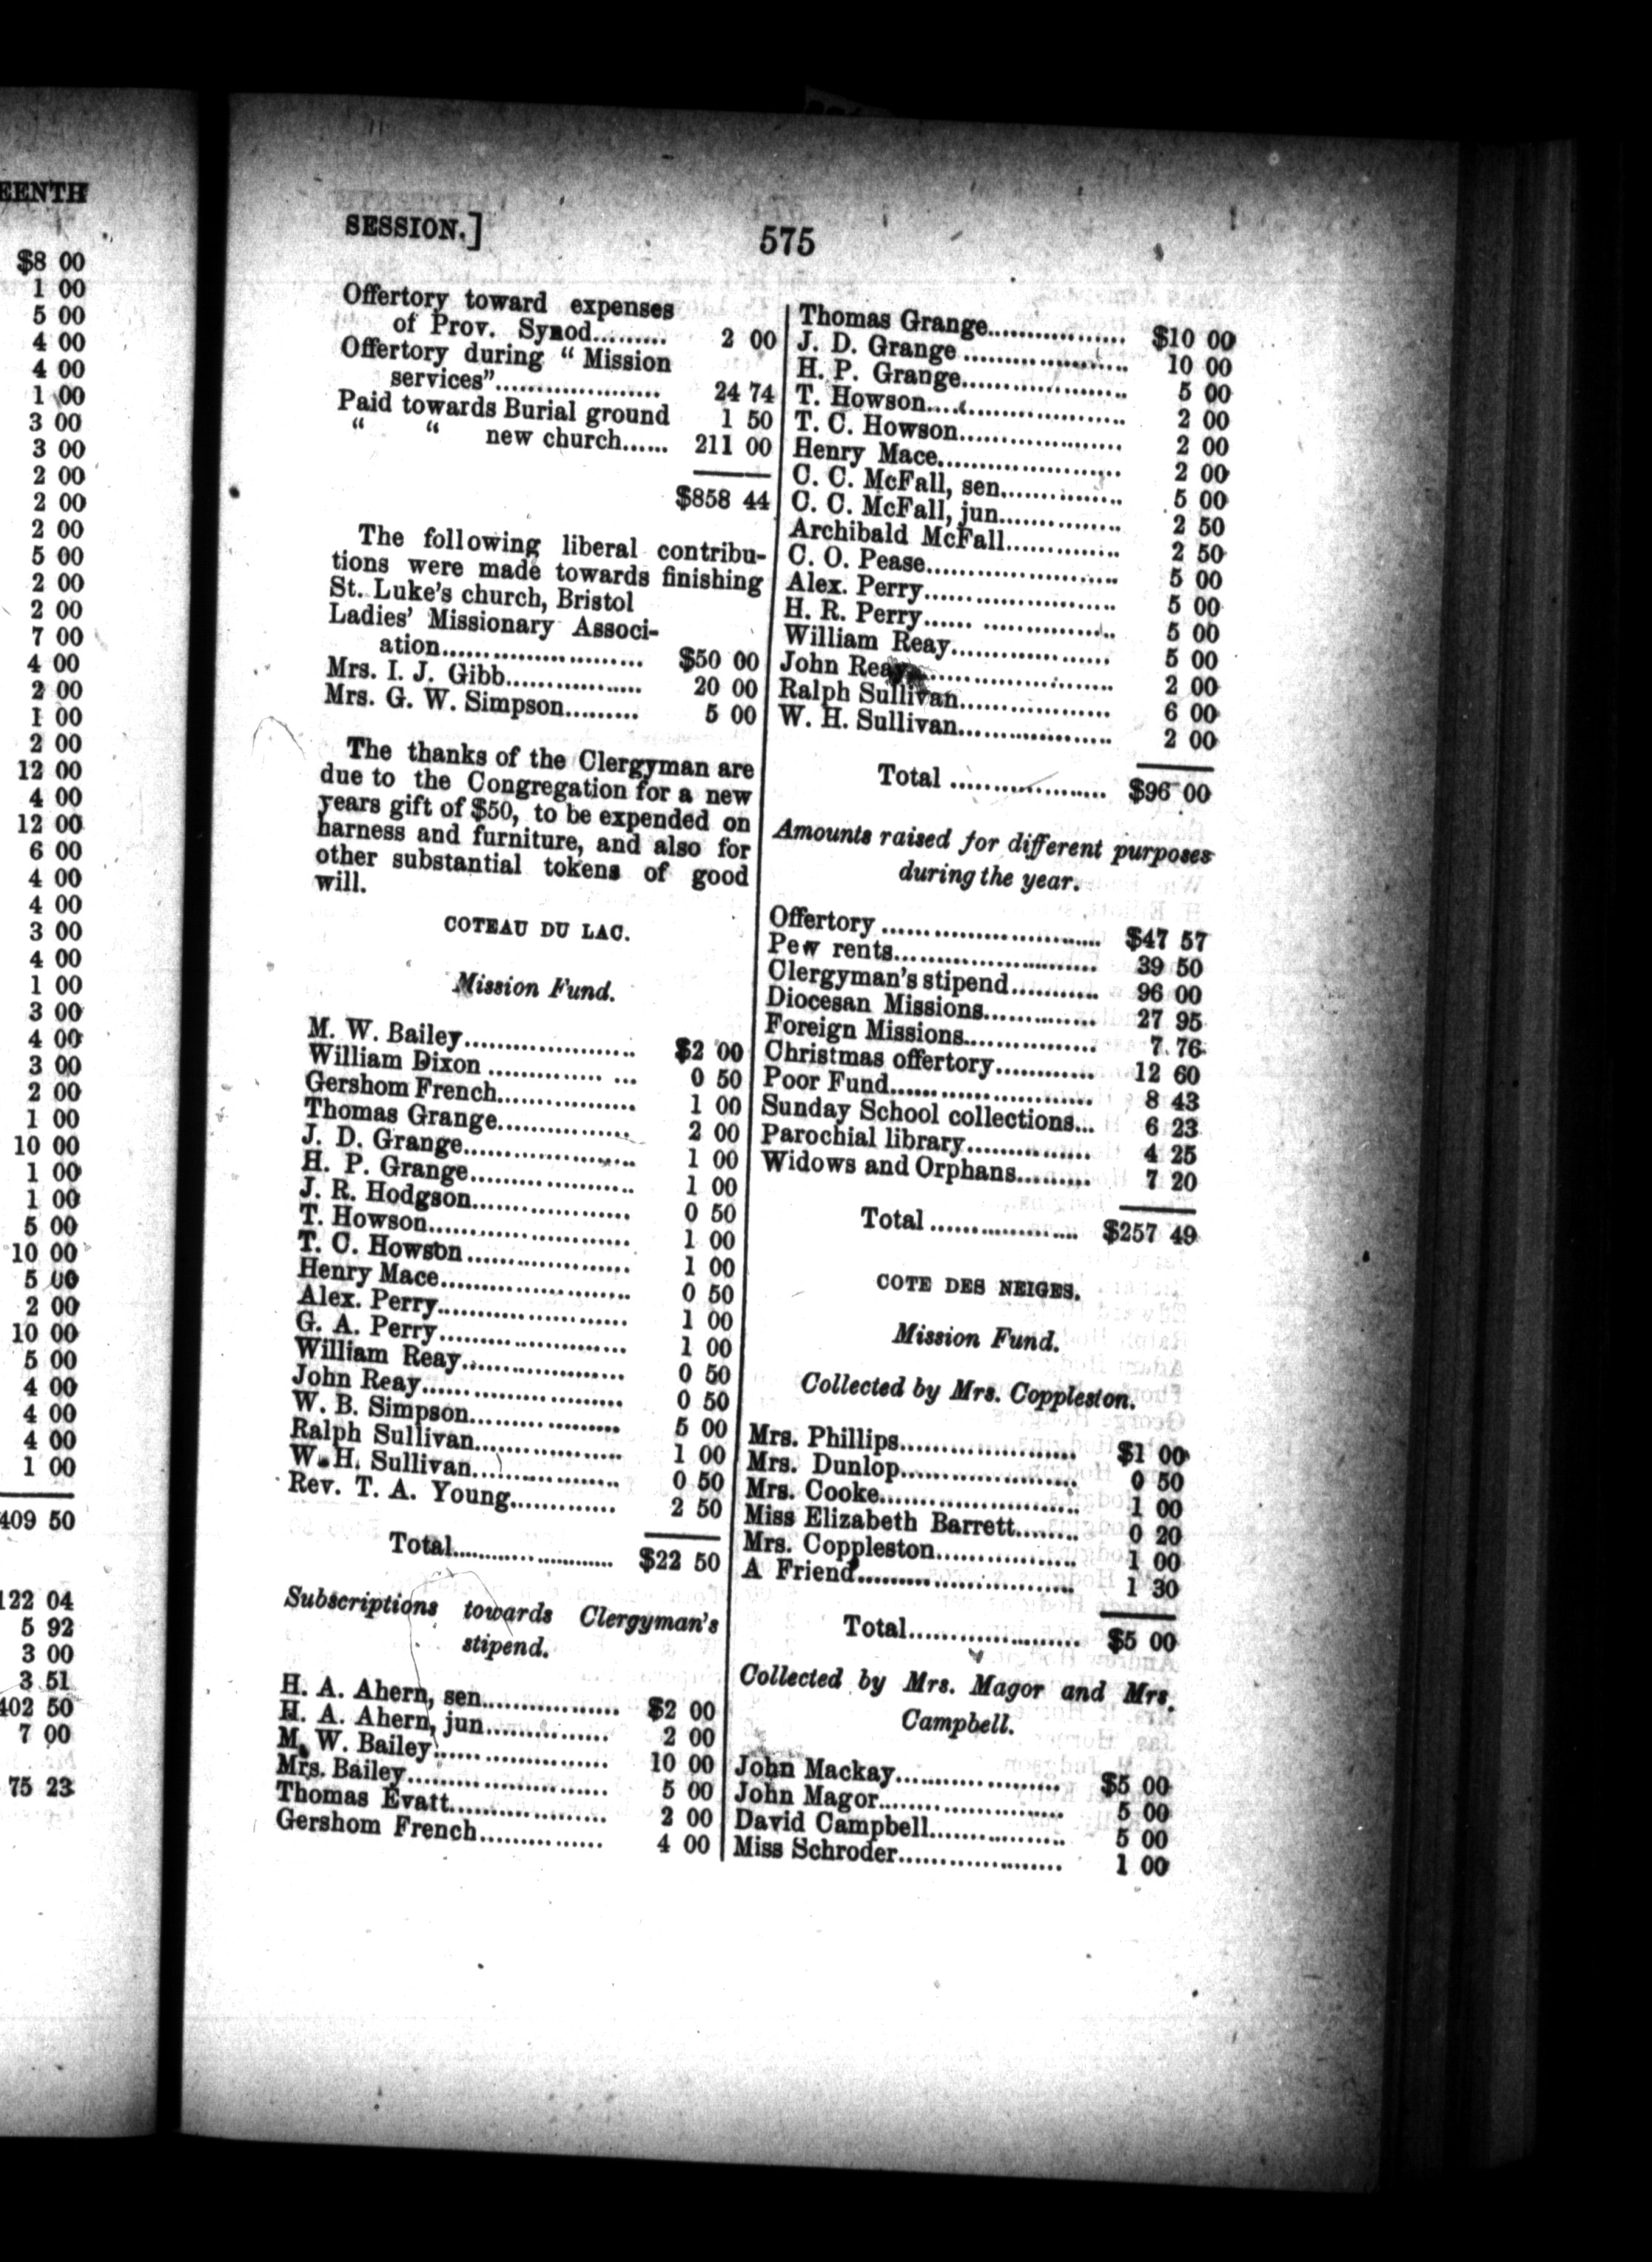 EENTH
$8 00
1 00
5 00
4 00
4 00
1 00
3 00
3 00
2 00
2 00
2 00
5 00
2 00
2 00
7 00
4 00
2 00
1 00
2 00
12 00
4 00
12 00
6 00
4 00
4 00
3 00
4 00
1 00
3 00
4 00
3 00
2 00
1 00
10 00
1 00
1 00
5 00
10 00
5 00
2 00
10 00
5 00
4 00
4 00
4 00
1 00
409 50
122 04
5 92
3 00
3 51
402 50
7 00
75 23
SESSION.] 575
Offertory toward expenses
of Prov. Synod......... 2 00
Offertory during “ Mission
services”................... 24 74
Paid towards Burial ground 1 50
“ “ new church...... 211 00
$858 44
The following liberal contribu-
tions were made towards finishing
St. Luke's church, Bristol
Ladies' Missionary Associ-
ation....................... $50 00
Mrs. I. J. Gibb................ 20 00
Mrs. G. W. Simpson......... 5 00
The thanks of the Clergyman are
due to the Congregation for a new
years gift of $50, to be expended on
harness and furniture, and also for
other substantial tokens of good
will.
COTEAU DU LAC.
Mission Fund.
M. W. Bailey.................... $2 00
William Dixon ................. 0 50
Gershom French................ 1 00
Thomas Grange............... 2 00
J. D. Grange.................... 1 00
H. P. Grange................... 1 00
J. R. Hodgson.................. 0 50
T. Howson....................... 1 00
T. C. Howson................... 1 00
Henry Mace...................... 0 50
Alex. Perry...................... 1 00
G. A. Perry...................... 1 00
William Reay................... 0 50
John Reay....................... 0 50
W. B. Simpson.................. 5 00
Ralph Sullivan................. 1 00
W. H. Sullivan................. 0 50
Rev. T. A. Young............. 2 50
Total....................... $22 50
Subscriptions towards Clergyman's
stipend.
H. A. Ahern, sen................ $2 00
H. A. Ahern, jun............... 2 00
M. W. Bailey................... 10 00
Mrs. Bailey....................... 5 00
Thomas Evatt................... 2 00
Gershom French............... 4 00
Thomas Grange................. $10 00
J. D. Grange .................... 10 00
H. P. Grange.................... 5 00
T. Howson....................... 2 00
T. C. Howson................... 2 00
Henry Mace...................... 2 00
C. C. McFall, sen............... 5 00
C. C. McFall, jun............... 2 50
Archibald McFall.............. 2 50
C. O. Pease....................... 5 00
Alex. Perry....................... 5 00
H. R. Perry...... ................ 5 00
William Reay................... 5 00
John Reay....................... 2 00
Ralph Sullivan.................. 6 00
W. H. Sullivan................... 2 00
Total ................... $96 00
Amounts raised for different purposes
during the year.
Offertory ........................... $47 57
Pew rents......................... 39 50
Clergyman's stipend........... 96 00
Diocesan Missions.............. 27 95
Foreign Missions................ 7 76
Christmas offertory............ 12 60
Poor Fund......................... 8 43
Sunday School collections... 6 23
Parochial library............... 4 25
Widows and Orphans......... 7 20
Total .................. $257 49
COTE DES NEIGES.
Mission Fund.
Collected by Mrs. Coppleston.
Mrs. Phillips..................... $1 00
Mrs. Dunlop..................... 0 50
Mrs. Cooke....................... 1 00
Miss Elizabeth Barrett........ 0 20
Mrs. Coppleston................ 1 00
A Friend.......................... 1 30
Total..................... $5 00
Collected by Mrs. Magor and Mrs.
Campbell.
John Mackay.................... $5 00
John Magor...................... 5 00
David Campbell................ 5 00
Miss Schroder.................... 1 00